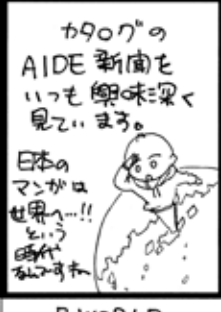 カタログの
AIDE新聞を
いつも興味深く
見ています。
日本の
マンガは
世界へ…!!
という
時代
なんですねー